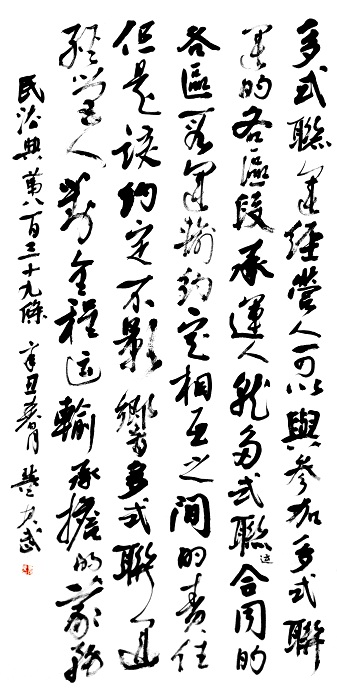 多式聯運經營人可以與參加多式聯
運的各區段承運人就多式聯运合同的
各區段運輸約定相互之間的責任
但是該約定不影響多式聯運
經營人對全程运輸承擔的義務
民法典第八百三十九條 辛丑春月